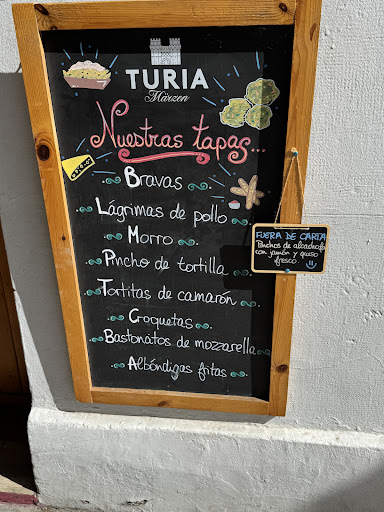 TURIA
Märzen
Nuestras tapas...
Bravas
Lágrimas de pollo
Morro
Pincho de tortilla
Tortitas de camarón
Croquetas
Bastonatos de mozzarella
Albóndigas fritas
FUERA DE CARTA
Pinchos de alcachofa
con jamón y queso
fresco